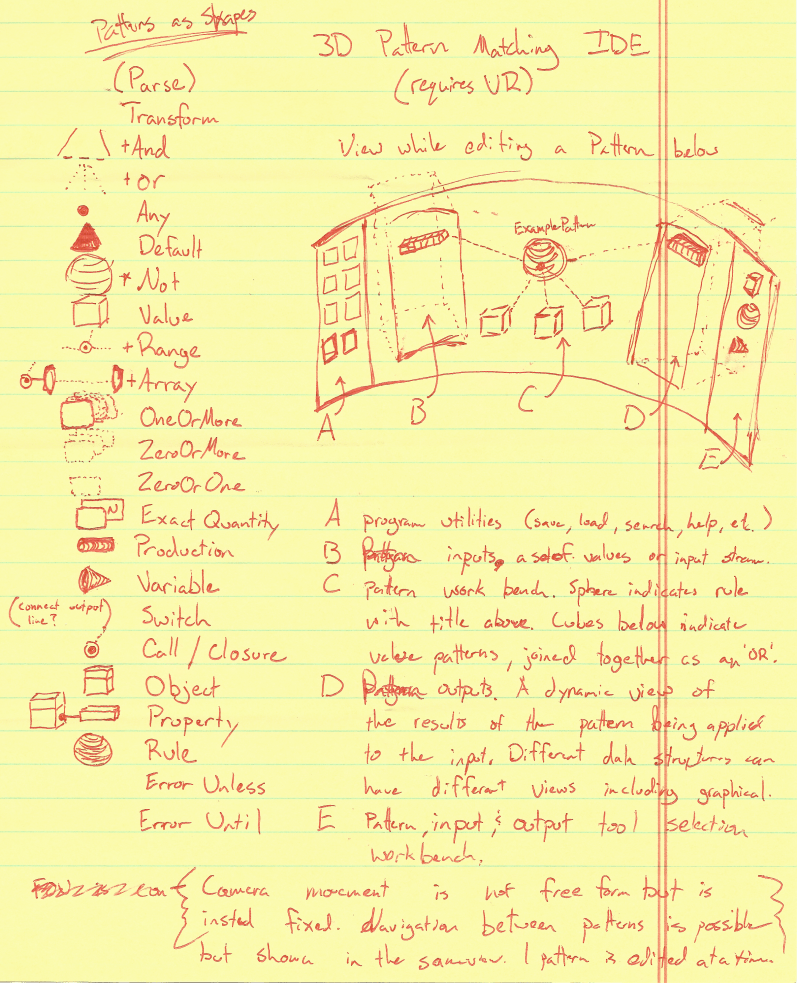 Patterns as Shapes
3D Pattern Matching IDE
(requires VR)
(Parse)
Transform
+And
+or
Any
Default
* Not
Value
+Range
+Array
OneOrMore
ZeroOrMore
ZeroOrOne
N
Exact Quantity
Production
Variable
(connect output
line?)
Switch
Call / Closure
Object
Property
Rule
Error Unless
Error Until
View while editing a Pattern below
ExamplePattern
A
B
C
D
E
A program utilities (save, load, search, help, etc.)
B Program inputs, a set of values or input stream.
C pattern work bench. Sphere indicates rule
with title above. Cubes below indicate
value patterns, joined together as an 'OR'.
D Program outputs. A dynamic view of
the results of the pattern being applied
to the input. Different data structures can
have different views including graphical.
E Pattern, input, & output tool selection
workbench.
Camera movement is not free form but is
insted fixed. Navigation between patterns is possible
but shown in the same view. 1 pattern is edited at a time.